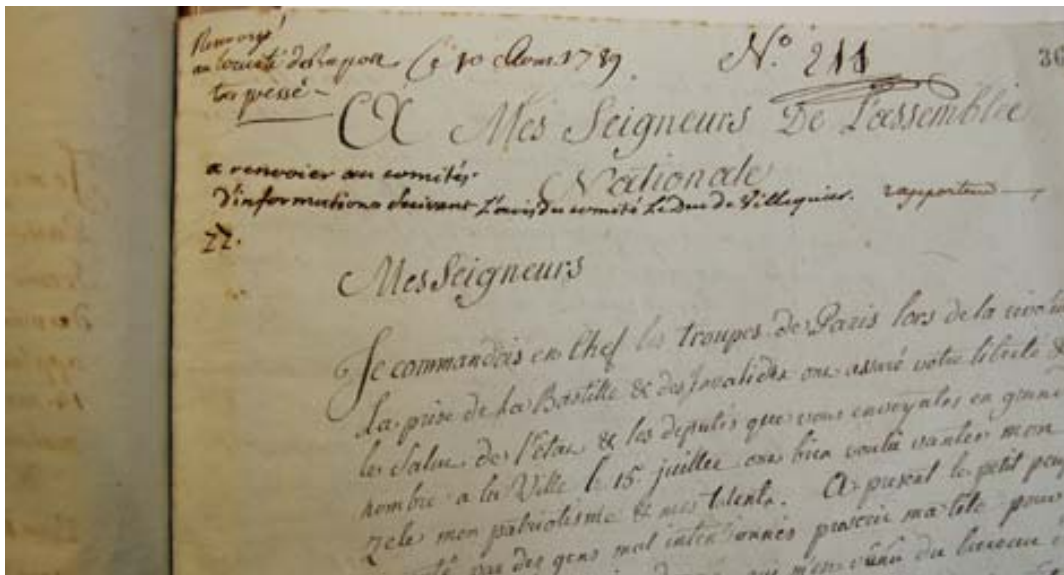 Renvoyé
au Comité de Rapport Ce 10 1789. N.° 211 36
A Mes Seigneurs De L'assemblée
Nationale
a renvoier au comités
d'informations suivant L'avis du comité Le Duc de Villequier. rapporteur
22.
Mes Seigneurs
Je commandois en Chef les troupes de Paris lors de la
la prise de la Bastille & des Invalides ont assuré votre liberté &
le Salut de l'Etat & les deputés que vous envoyates en grand
nombre a la Ville le 15 juillet ont bien voulu vanter mon
zele mon patriotisme & mes talents. A present le petit
par des gens mal intentionnés proscrit ma tête pour
du